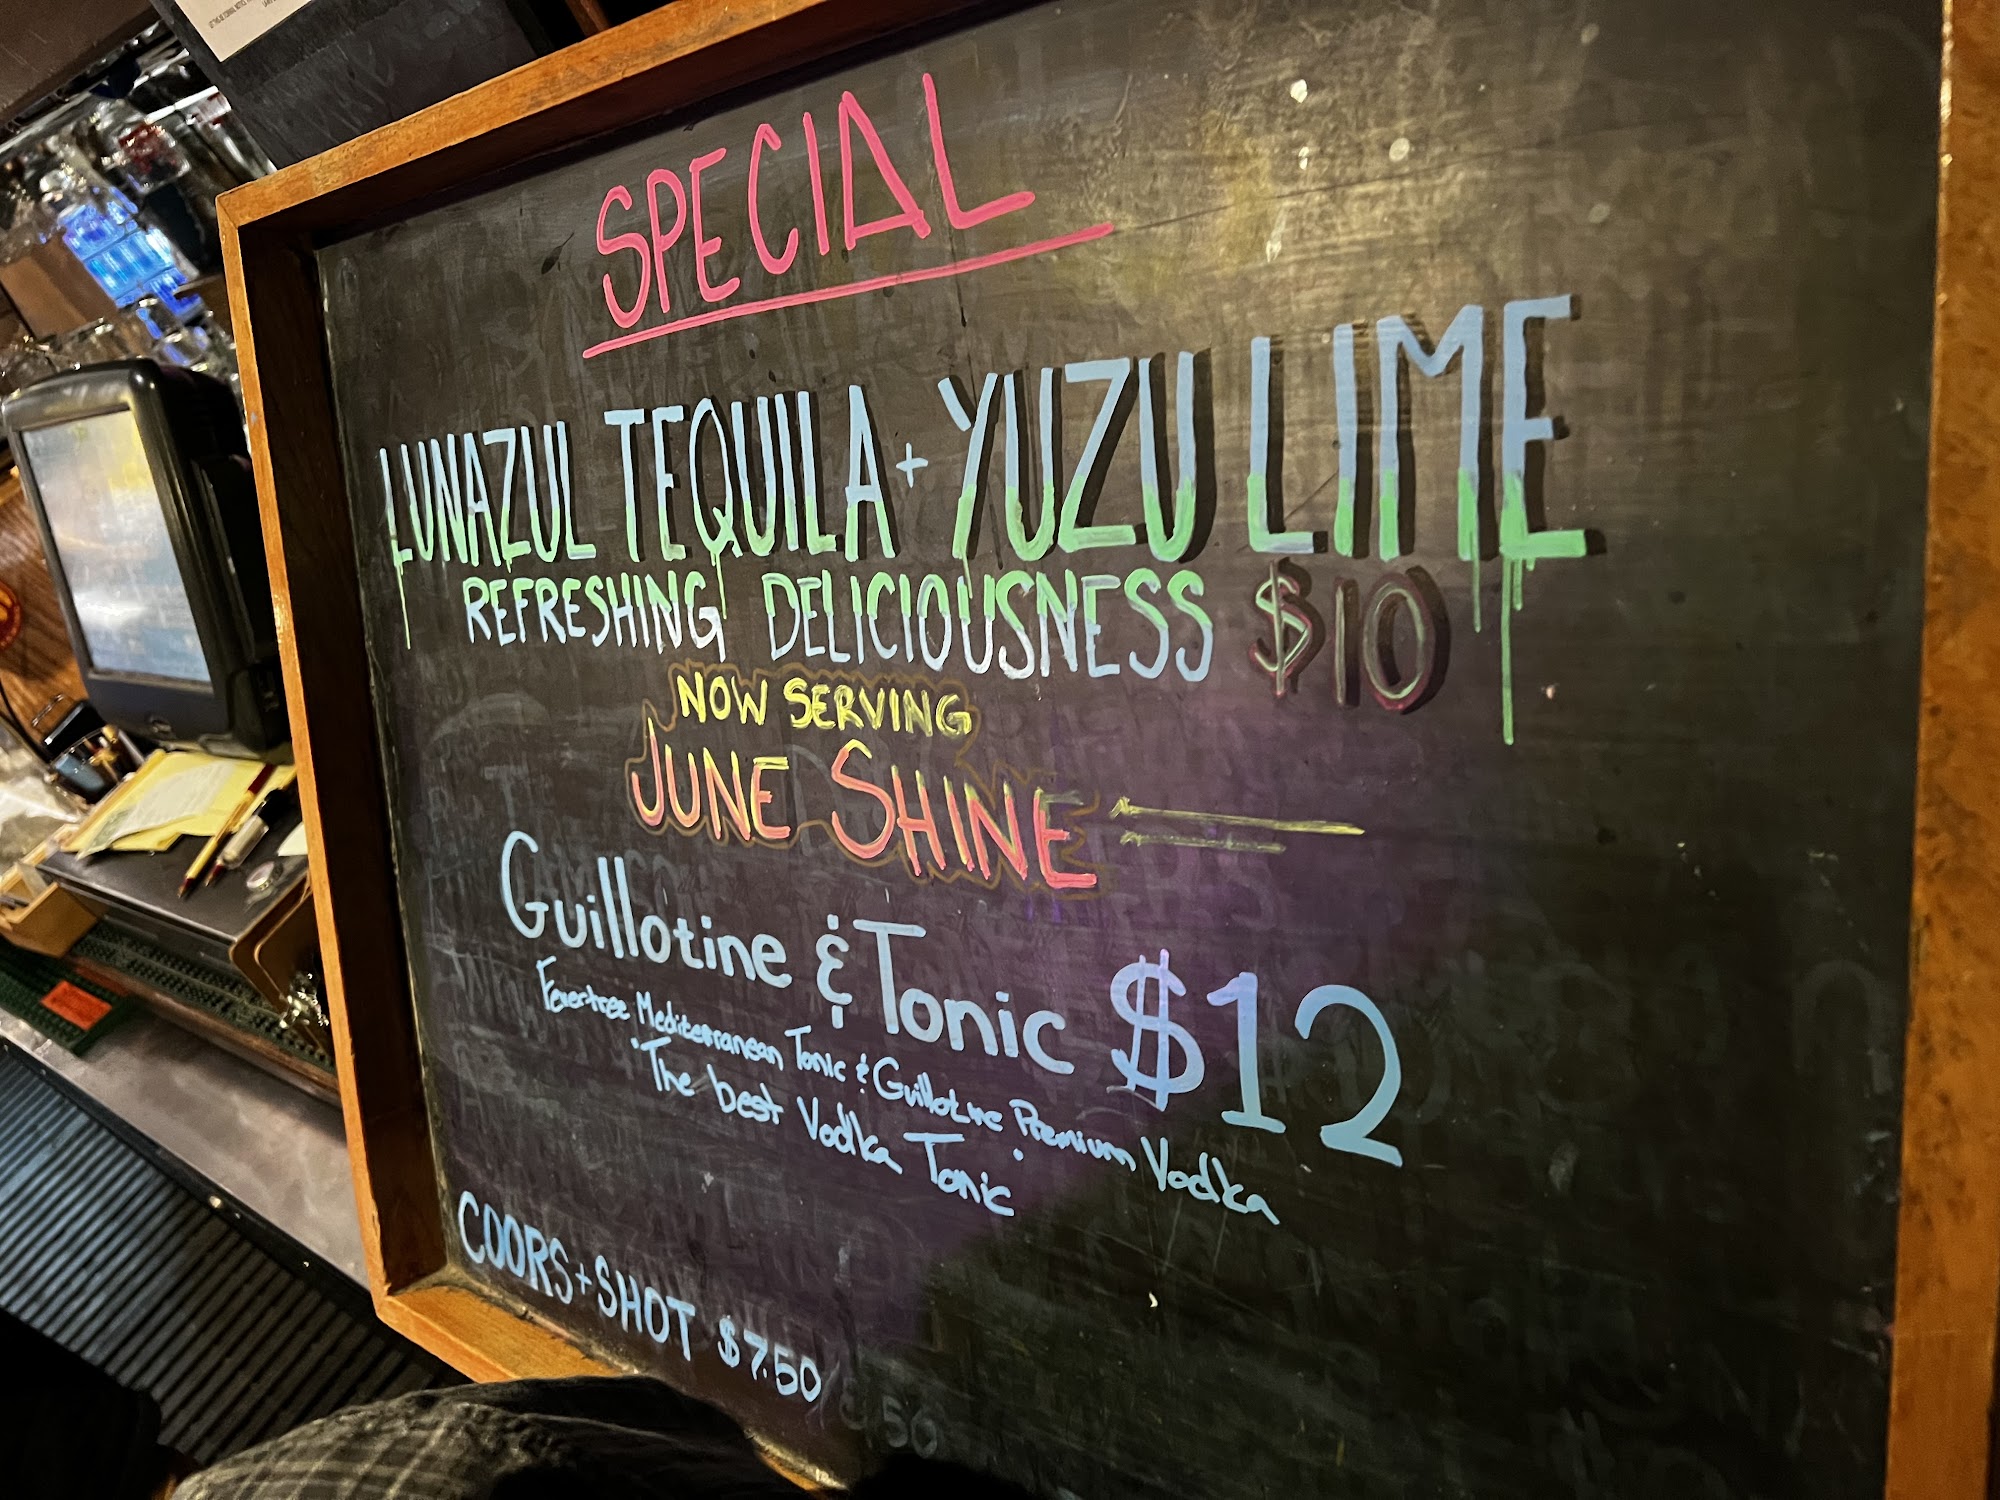 SPECIAL
LUNAZUL TEQUILA + YUZU LIME
REFRESHING DELICIOUSNESS $10
NOW SERVING
JUNE SHINE
Guillotine & Tonic $12
Fevertree Mediterranean Tonic & Guillotine Premium Vodka
"The best Vodka Tonic"
COORS + SHOT $7.50